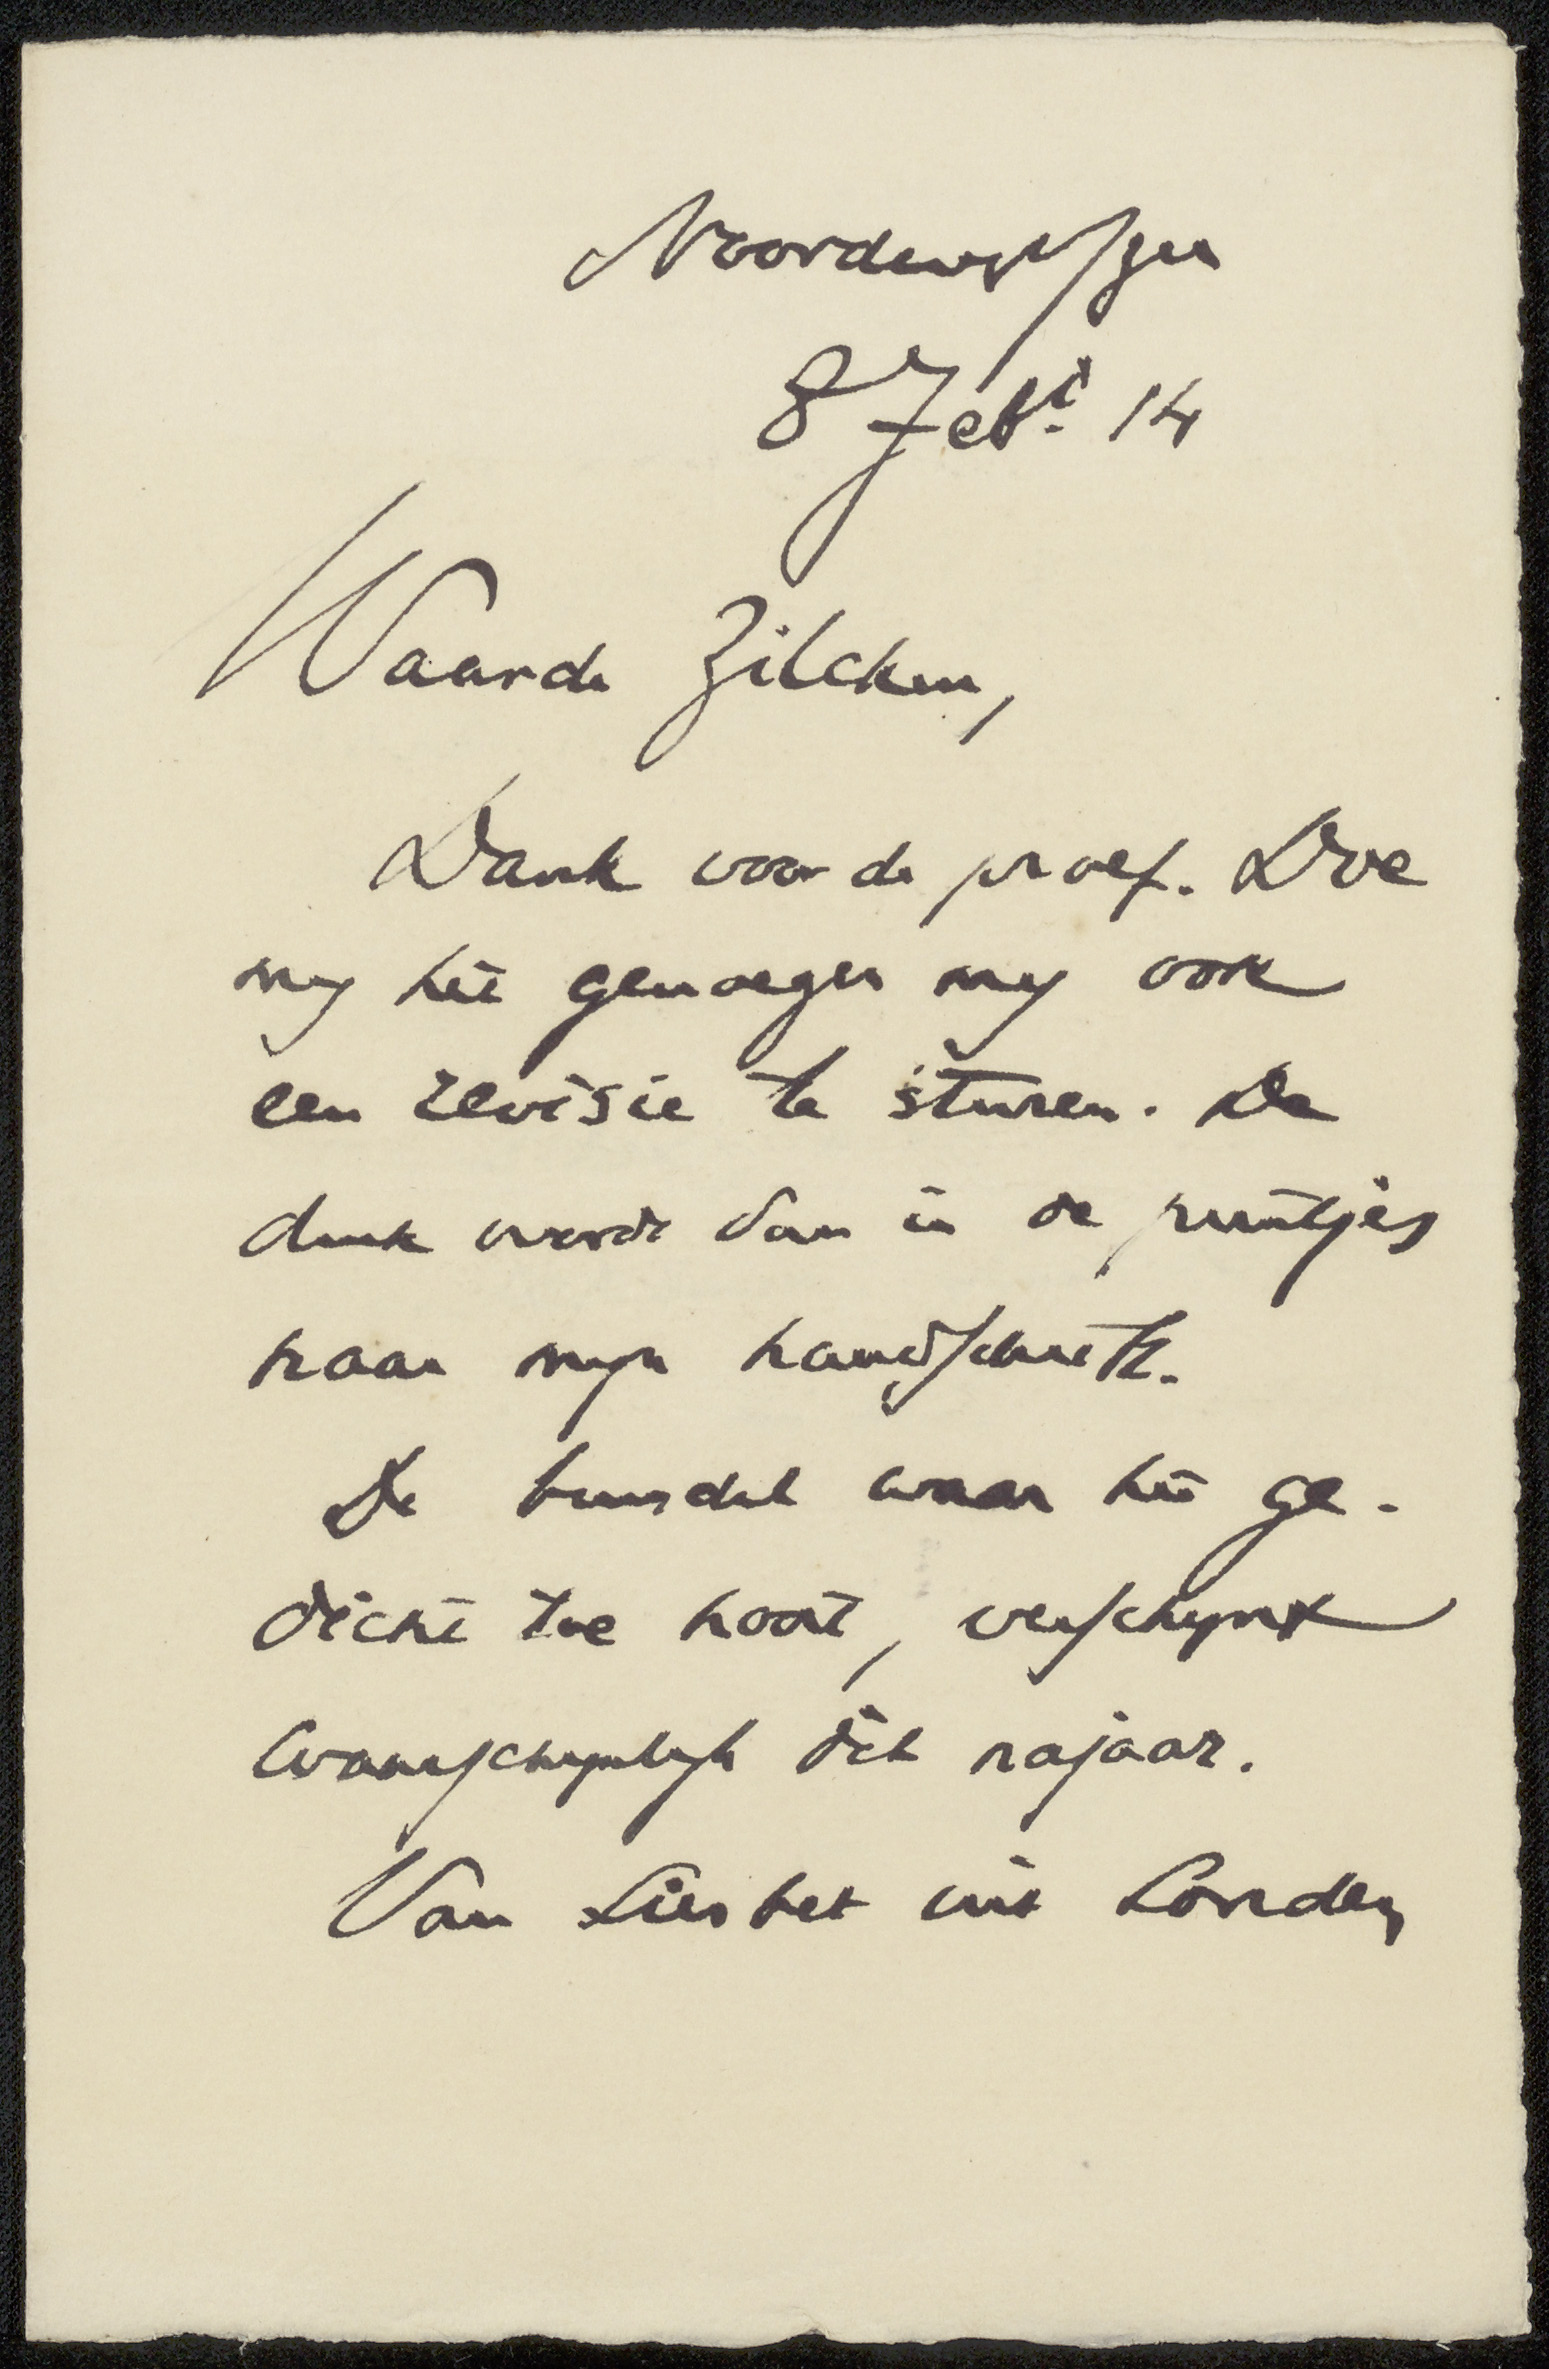 Noordwijk/zee
8 Febr. 14
Waarde Zilcken,
Dank voor de proef. Doe
mij het genoegen mij ook
een revisie te sturen. De
druk wordt dan in de puntjes
naar mijn handschrift.
De bundel waar het ge-
dicht toe hoort, verschijnt
waarschijnlijk dit najaar.
Van Liesbet uit Londen